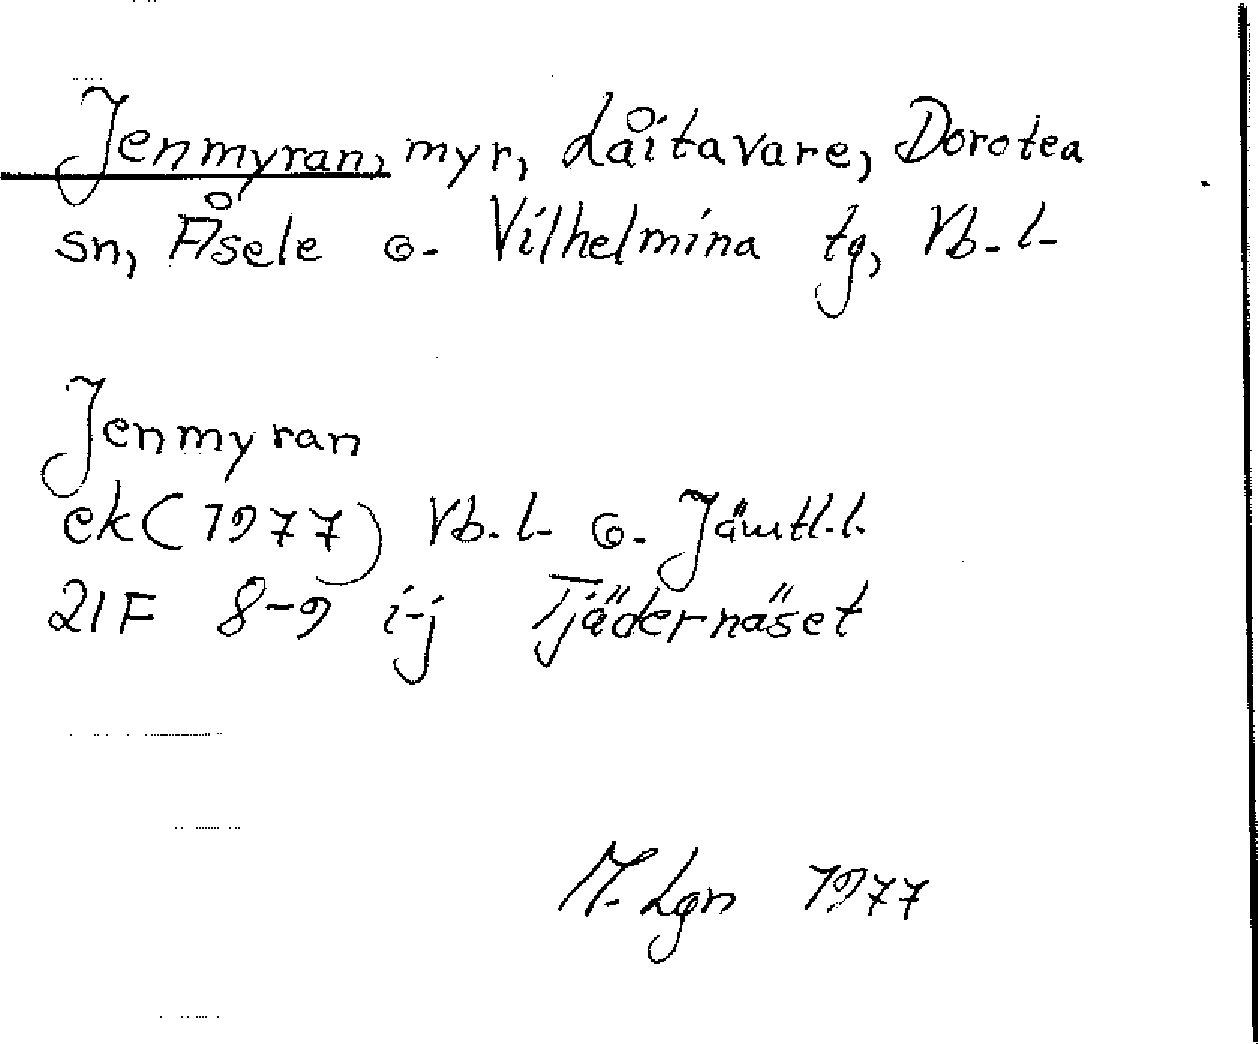 Jenmyran, myr, Låitavare, Dorotea
sn, Åsele o. Vilhelmina tg, Vb. l.
Jenmyran
ek (1977) Vb. l. o. Jämtl. l.
21F 8-9 i-j Tjädernäset
M. Lgn 1977